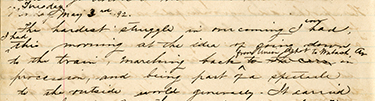 Tuesday
May 3rd 92.
The hardest struggle in overcoming I ever had,
I had
this morning at the idea of going down
from Union Depot to Wabash
to the train, marching back to the cars in
procession, and being part of a spectacle
to the outside world generously. It carried